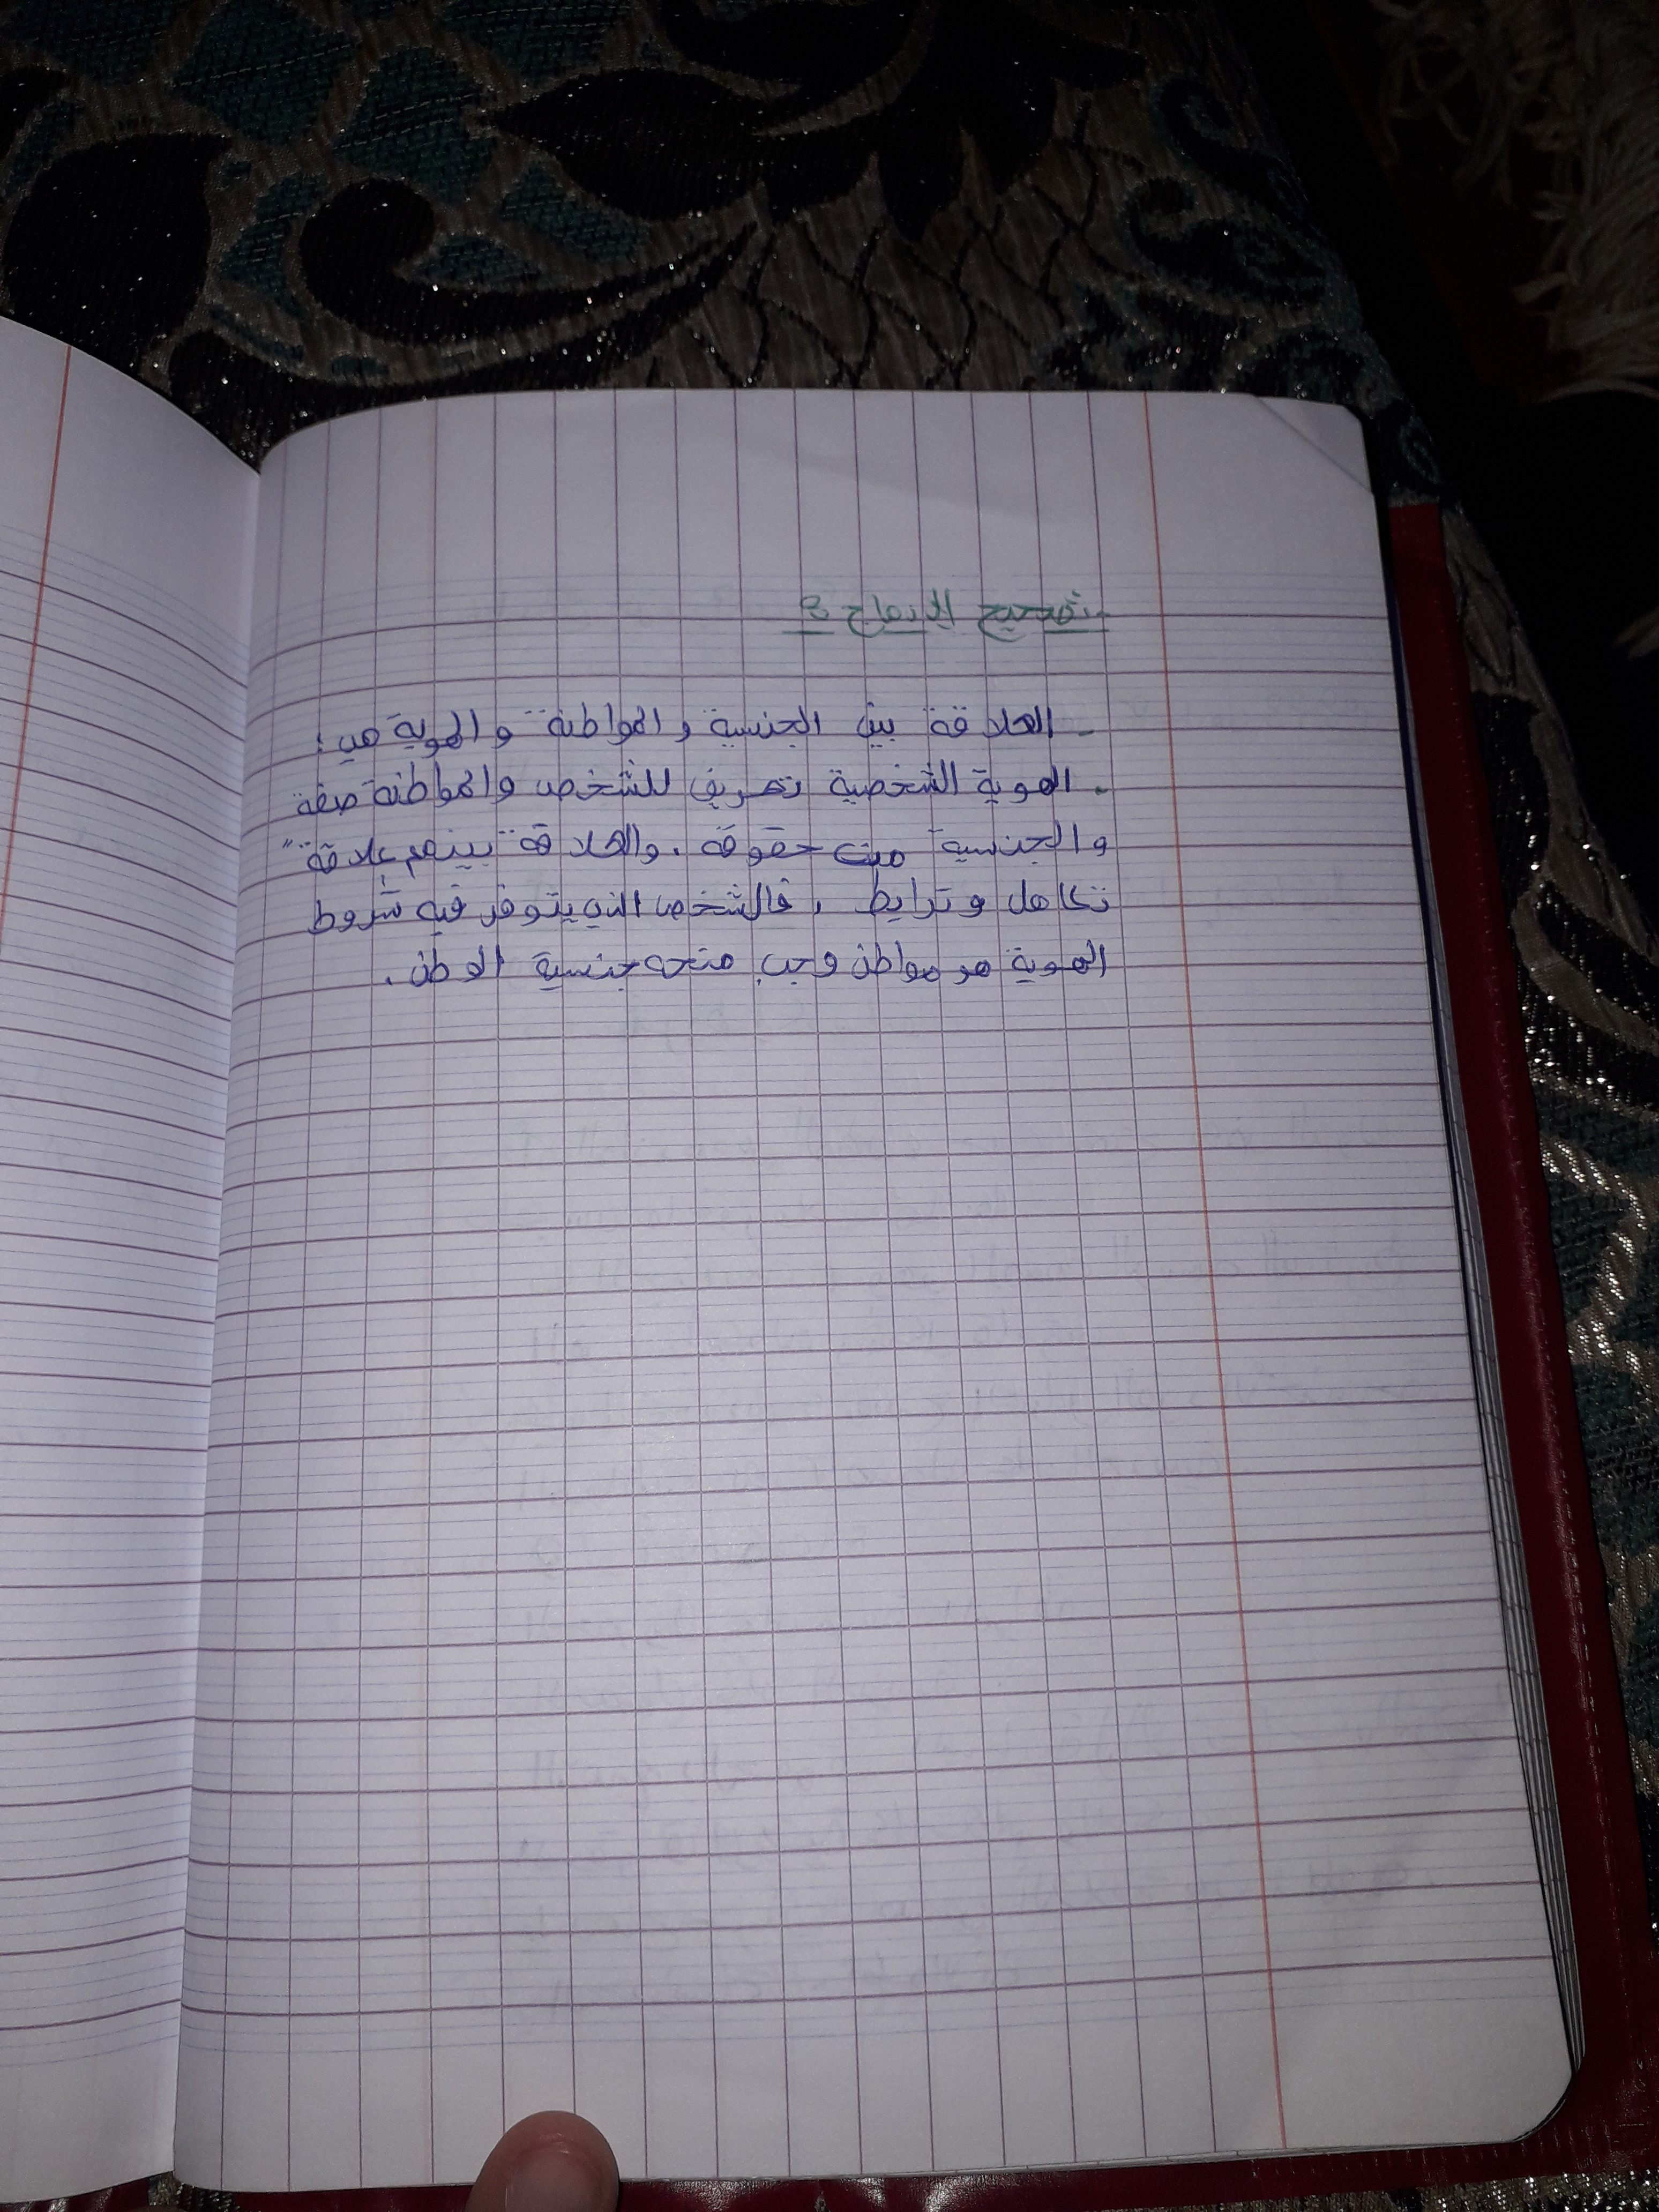 تصحيح الإدماج 3
- العلاقة بين الجنسية والمواطنة والهوية هي:
. الهوية الشخصية تعريف للشخص والمواطنة صفة
والجنسية من حقوقه. والعلاقة بينهم علاقة
تكامل وترابط، فالشخص الذي يتوفر فيه شروط
الهوية هو مواطن وجب منحه جنسية الوطن.